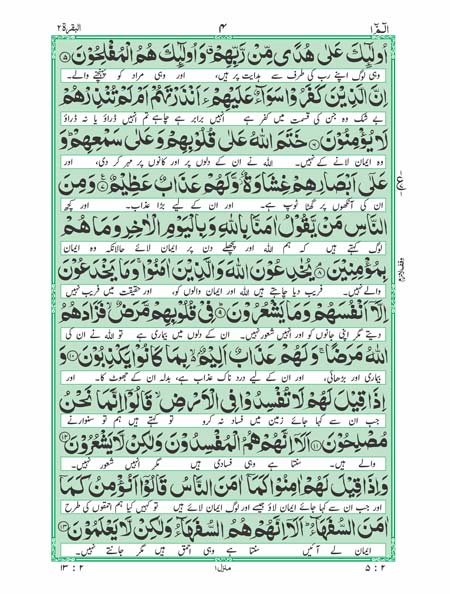 الٓمّٓ ١ ٤ البقرة ٢
اُولٰٓئِكَ عَلٰى هُدًى مِّنْ رَّبِّهِمْ ۗ وَاُولٰٓئِكَ هُمُ الْمُفْلِحُوْنَ ٥
وہی لوگ اپنے رب کی طرف سے ہدایت پر ہیں، اور وہی مراد کو پہنچنے والے۔
اِنَّ الَّذِيْنَ كَفَرُوْا سَوَآءٌ عَلَيْهِمْ ءَاَنْذَرْتَهُمْ اَمْ لَمْ تُنْذِرْهُمْ
بے شک وہ جن کی قسمت میں کفر ہے انہیں برابر ہے چاہے تم انہیں ڈراؤ یا نہ ڈراؤ
لَا يُؤْمِنُوْنَ ٦ خَتَمَ اللّٰهُ عَلٰى قُلُوْبِهِمْ وَعَلٰى سَمْعِهِمْ ۗ وَ
وہ ایمان لانے کے نہیں۔ اللہ نے ان کے دلوں پر اور کانوں پر مہر کر دی، اور
عَلٰٓى اَبْصَارِهِمْ غِشَاوَةٌ ۚ وَّلَهُمْ عَذَابٌ عَظِيْمٌ ٧ وَمِنَ
ان کی آنکھوں پر گھٹا ٹوپ ہے۔ اور ان کے لیے بڑا عذاب۔ اور کچھ
النَّاسِ مَنْ يَّقُوْلُ اٰمَنَّا بِاللّٰهِ وَبِالْيَوْمِ الْاٰخِرِ وَمَا هُمْ
لوگ کہتے ہیں کہ ہم اللہ اور پچھلے دن پر ایمان لائے حالانکہ وہ ایمان
بِمُؤْمِنِيْنَ ٨ يُخٰدِعُوْنَ اللّٰهَ وَالَّذِيْنَ اٰمَنُوْا ۚ وَمَا يَخْدَعُوْنَ
والے نہیں۔ فریب دیا چاہتے ہیں اللہ اور ایمان والوں کو، اور حقیقت میں فریب نہیں
اِلَّآ اَنْفُسَهُمْ وَمَا يَشْعُرُوْنَ ٩ فِيْ قُلُوْبِهِمْ مَّرَضٌ ۙ فَزَادَهُمُ
دیتے مگر اپنی جانوں کو اور انہیں شعور نہیں۔ ان کے دلوں میں بیماری ہے تو اللہ نے ان کی
اللّٰهُ مَرَضًا ۚ وَلَهُمْ عَذَابٌ اَلِيْمٌۢ ۙ بِمَا كَانُوْا يَكْذِبُوْنَ ١٠ وَ
بیماری اور بڑھائی، اور ان کے لیے درد ناک عذاب ہے، بدلہ ان کے جھوٹ کا۔ اور
اِذَا قِيْلَ لَهُمْ لَا تُفْسِدُوْا فِى الْاَرْضِ ۙ قَالُوْٓا اِنَّمَا نَحْنُ
جب ان سے کہا جائے زمین میں فساد نہ کرو تو کہتے ہیں ہم تو سنوارنے
مُصْلِحُوْنَ ١١ اَلَآ اِنَّهُمْ هُمُ الْمُفْسِدُوْنَ وَلٰكِنْ لَّا يَشْعُرُوْنَ ١٢
والے ہیں۔ سنتا ہے وہی فسادی ہیں مگر انہیں شعور نہیں۔
وَاِذَا قِيْلَ لَهُمْ اٰمِنُوْا كَمَآ اٰمَنَ النَّاسُ قَالُوْٓا اَنُؤْمِنُ كَمَآ
اور جب ان سے کہا جائے ایمان لاؤ جیسے اور لوگ ایمان لائے ہیں تو کہیں کیا ہم احمقوں کی طرح
اٰمَنَ السُّفَهَآءُ ۗ اَلَآ اِنَّهُمْ هُمُ السُّفَهَآءُ وَلٰكِنْ لَّا يَعْلَمُوْنَ ١٣
ایمان لے آئیں سنتا ہے وہی احمق ہیں مگر جانتے نہیں۔
٢ : ٥ منزل ١ ٢ : ١٣